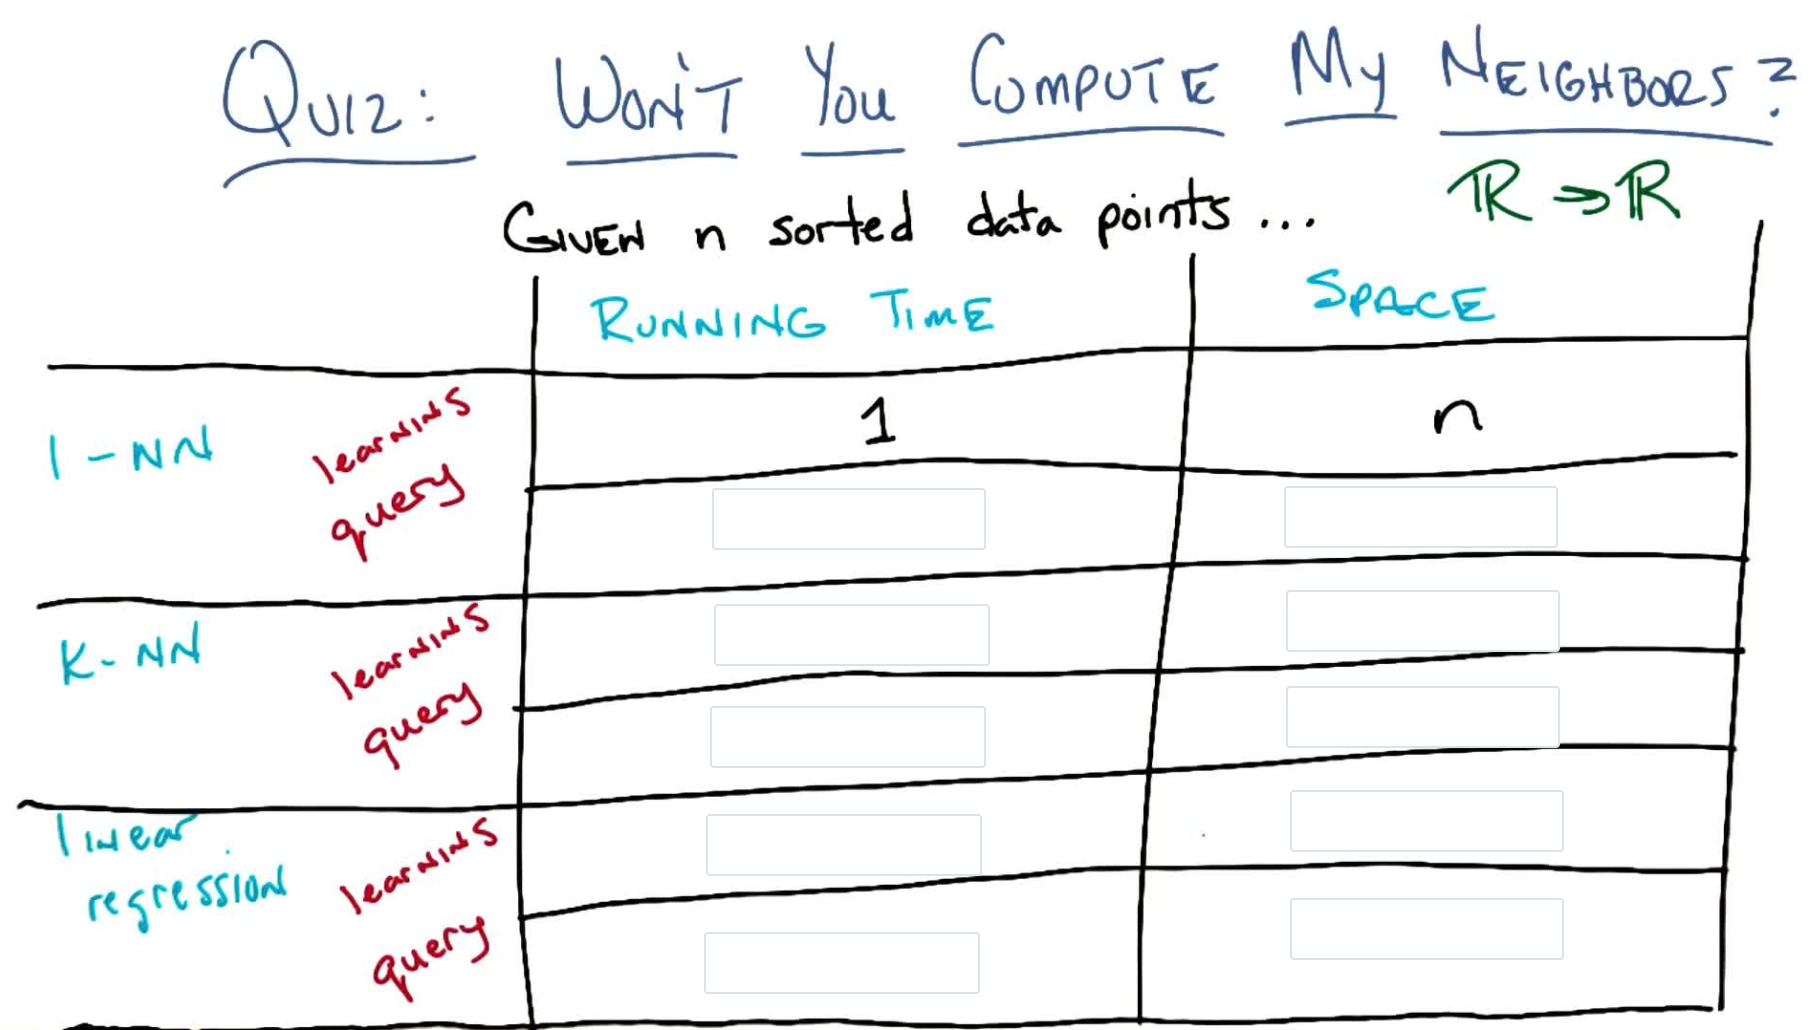 QUIZ: WON'T YOU COMPUTE MY NEIGHBORS?
GIVEN n sorted data points... ℝ → ℝ
RUNNING TIME SPACE
1-NN learning 1 n
query
K-NN learning
query
linear regression learning
query